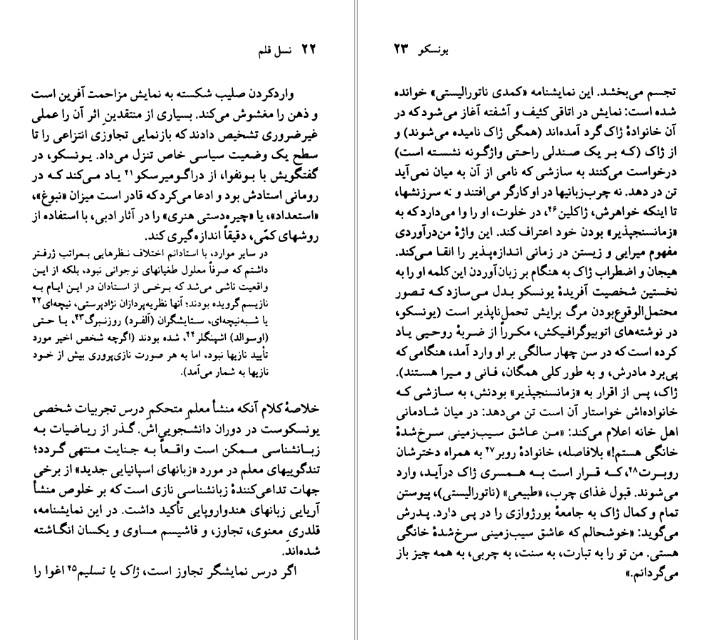 ۲۲ نسل قلم
واردکردن صلیب شکسته به نمایش مزاحمت آفرین است
و ذهن را مغشوش می‌کند. بسیاری از منتقدین اثر آن را عملی
غیرضروری تشخیص دادند که بازنمایی تجاوزی انتزاعی را تا
سطح یک وضعیت سیاسی خاص تنزل می‌داد. یونسکو، در
گفتگویش با بونفوا، از دراگومیرسکو۲۱ یاد می‌کند که در
رومانی استادش بود و ادعا می‌کرد که قادر است میزان «نبوغ»،
«استعداد»، یا «چیره‌دستی هنری» را در آثار ادبی، با استفاده از
روشهای کمّی، دقیقاً اندازه‌گیری کند.
در سایر موارد، با استادانم اختلاف نظرهایی بمراتب ژرفتر
داشتم که صرفاً معلول طغیانهای نوجوانی نبود، بلکه از این
واقعیت ناشی می‌شد که برخی از استادان در این ایام به
نازیسم گرویده بودند؛ آنها نظریه‌پردازان نژادپرستی، نیچه‌ای۲۲
یا شبه‌نیچه‌ای، ستایشگران (آلفرد) روزنبرگ۲۳، یا حتی
(اوسوالد) اشپنگلر۲۴، شده بودند (اگرچه شخص اخیر مورد
تأیید نازیها نبود، اما به هر صورت نازی‌پروری بیش از خود
نازیها به شمار می‌آمد).
خلاصهٔ کلام آنکه منشأ معلم متحکمِ درس تجربیات شخصی
یونسکوست در دوران دانشجویی‌اش. گذر از ریاضیات به
زبانشناسی ممکن است واقعاً به جنایت منتهی گردد؛
تندگوییهای معلم در مورد «زبانهای اسپانیایی جدید» از برخی
جهات تداعی‌کنندهٔ زبانشناسی نازی است که بر خلوص منشأ
آریایی زبانهای هندواروپایی تأکید داشت. در این نمایشنامه،
قلدریِ معنوی، تجاوز، و فاشیسم مساوی و یکسان انگاشته
شده‌اند.
اگر درس نمایشگر تجاوز است، ژاک یا تسلیم۲۵ اغوا را
یونسکو ۲۳
تجسم می‌بخشد. این نمایشنامه «کمدی ناتورالیستی» خوانده
شده است: نمایش در اتاقی کثیف و آشفته آغاز می‌شود که در
آن خانوادهٔ ژاک گرد آمده‌اند (همگی ژاک نامیده می‌شوند) و
از ژاک (که بر یک صندلی راحتی واژگونه نشسته است)
درخواست می‌کنند به سازشی که نامی از آن به میان نمی‌آید
تن در دهد. نه چرب‌زبانیها در او کارگر می‌افتند و نه سرزنشها،
تا اینکه خواهرش، ژاکلین۲۶، در خلوت، او را وا می‌دارد که به
«زمانسنجپذیر» بودن خود اعتراف کند. این واژهٔ من‌درآوردی
مفهوم میرایی و زیستن در زمانی اندازه‌پذیر را القا می‌کند.
هیجان و اضطراب ژاک به هنگام بر زبان‌آوردن این کلمه او را به
نخستین شخصیت آفریدهٔ یونسکو بدل می‌سازد که تصور
محتمل‌الوقوع‌بودن مرگ برایش تحمل‌ناپذیر است (یونسکو،
در نوشته‌های اتوبیوگرافیکش، مکرراً از ضربهٔ روحیی یاد
کرده است که در سن چهار سالگی بر او وارد آمد، هنگامی که
پی‌برد مادرش، و به طور کلی همگان، فانی و میرا هستند).
ژاک، پس از اقرار به «زمانسنجپذیر» بودنش، به سازشی که
خانواده‌اش خواستار آن است تن می‌دهد: در میان شادمانی
اهل خانه اعلام می‌کند: «من عاشق سیب‌زمینی سرخ‌شدهٔ
خانگی هستم!» بلافاصله، خانوادهٔ روبر۲۷ به همراه دخترشان
روبرت۲۸، که قرار است به همسری ژاک درآید، وارد
می‌شوند. قبول غذای چرب، «طبیعی» (ناتورالیستی)، پیوستن
تمام و کمال ژاک به جامعهٔ بورژوازی را در پی دارد. پدرش
می‌گوید: «خوشحالم که عاشق سیب‌زمینی سرخ‌شدهٔ خانگی
هستی. من تو را به تبارت، به سنت، به چربی، به همه چیز باز
می‌گردانم.»